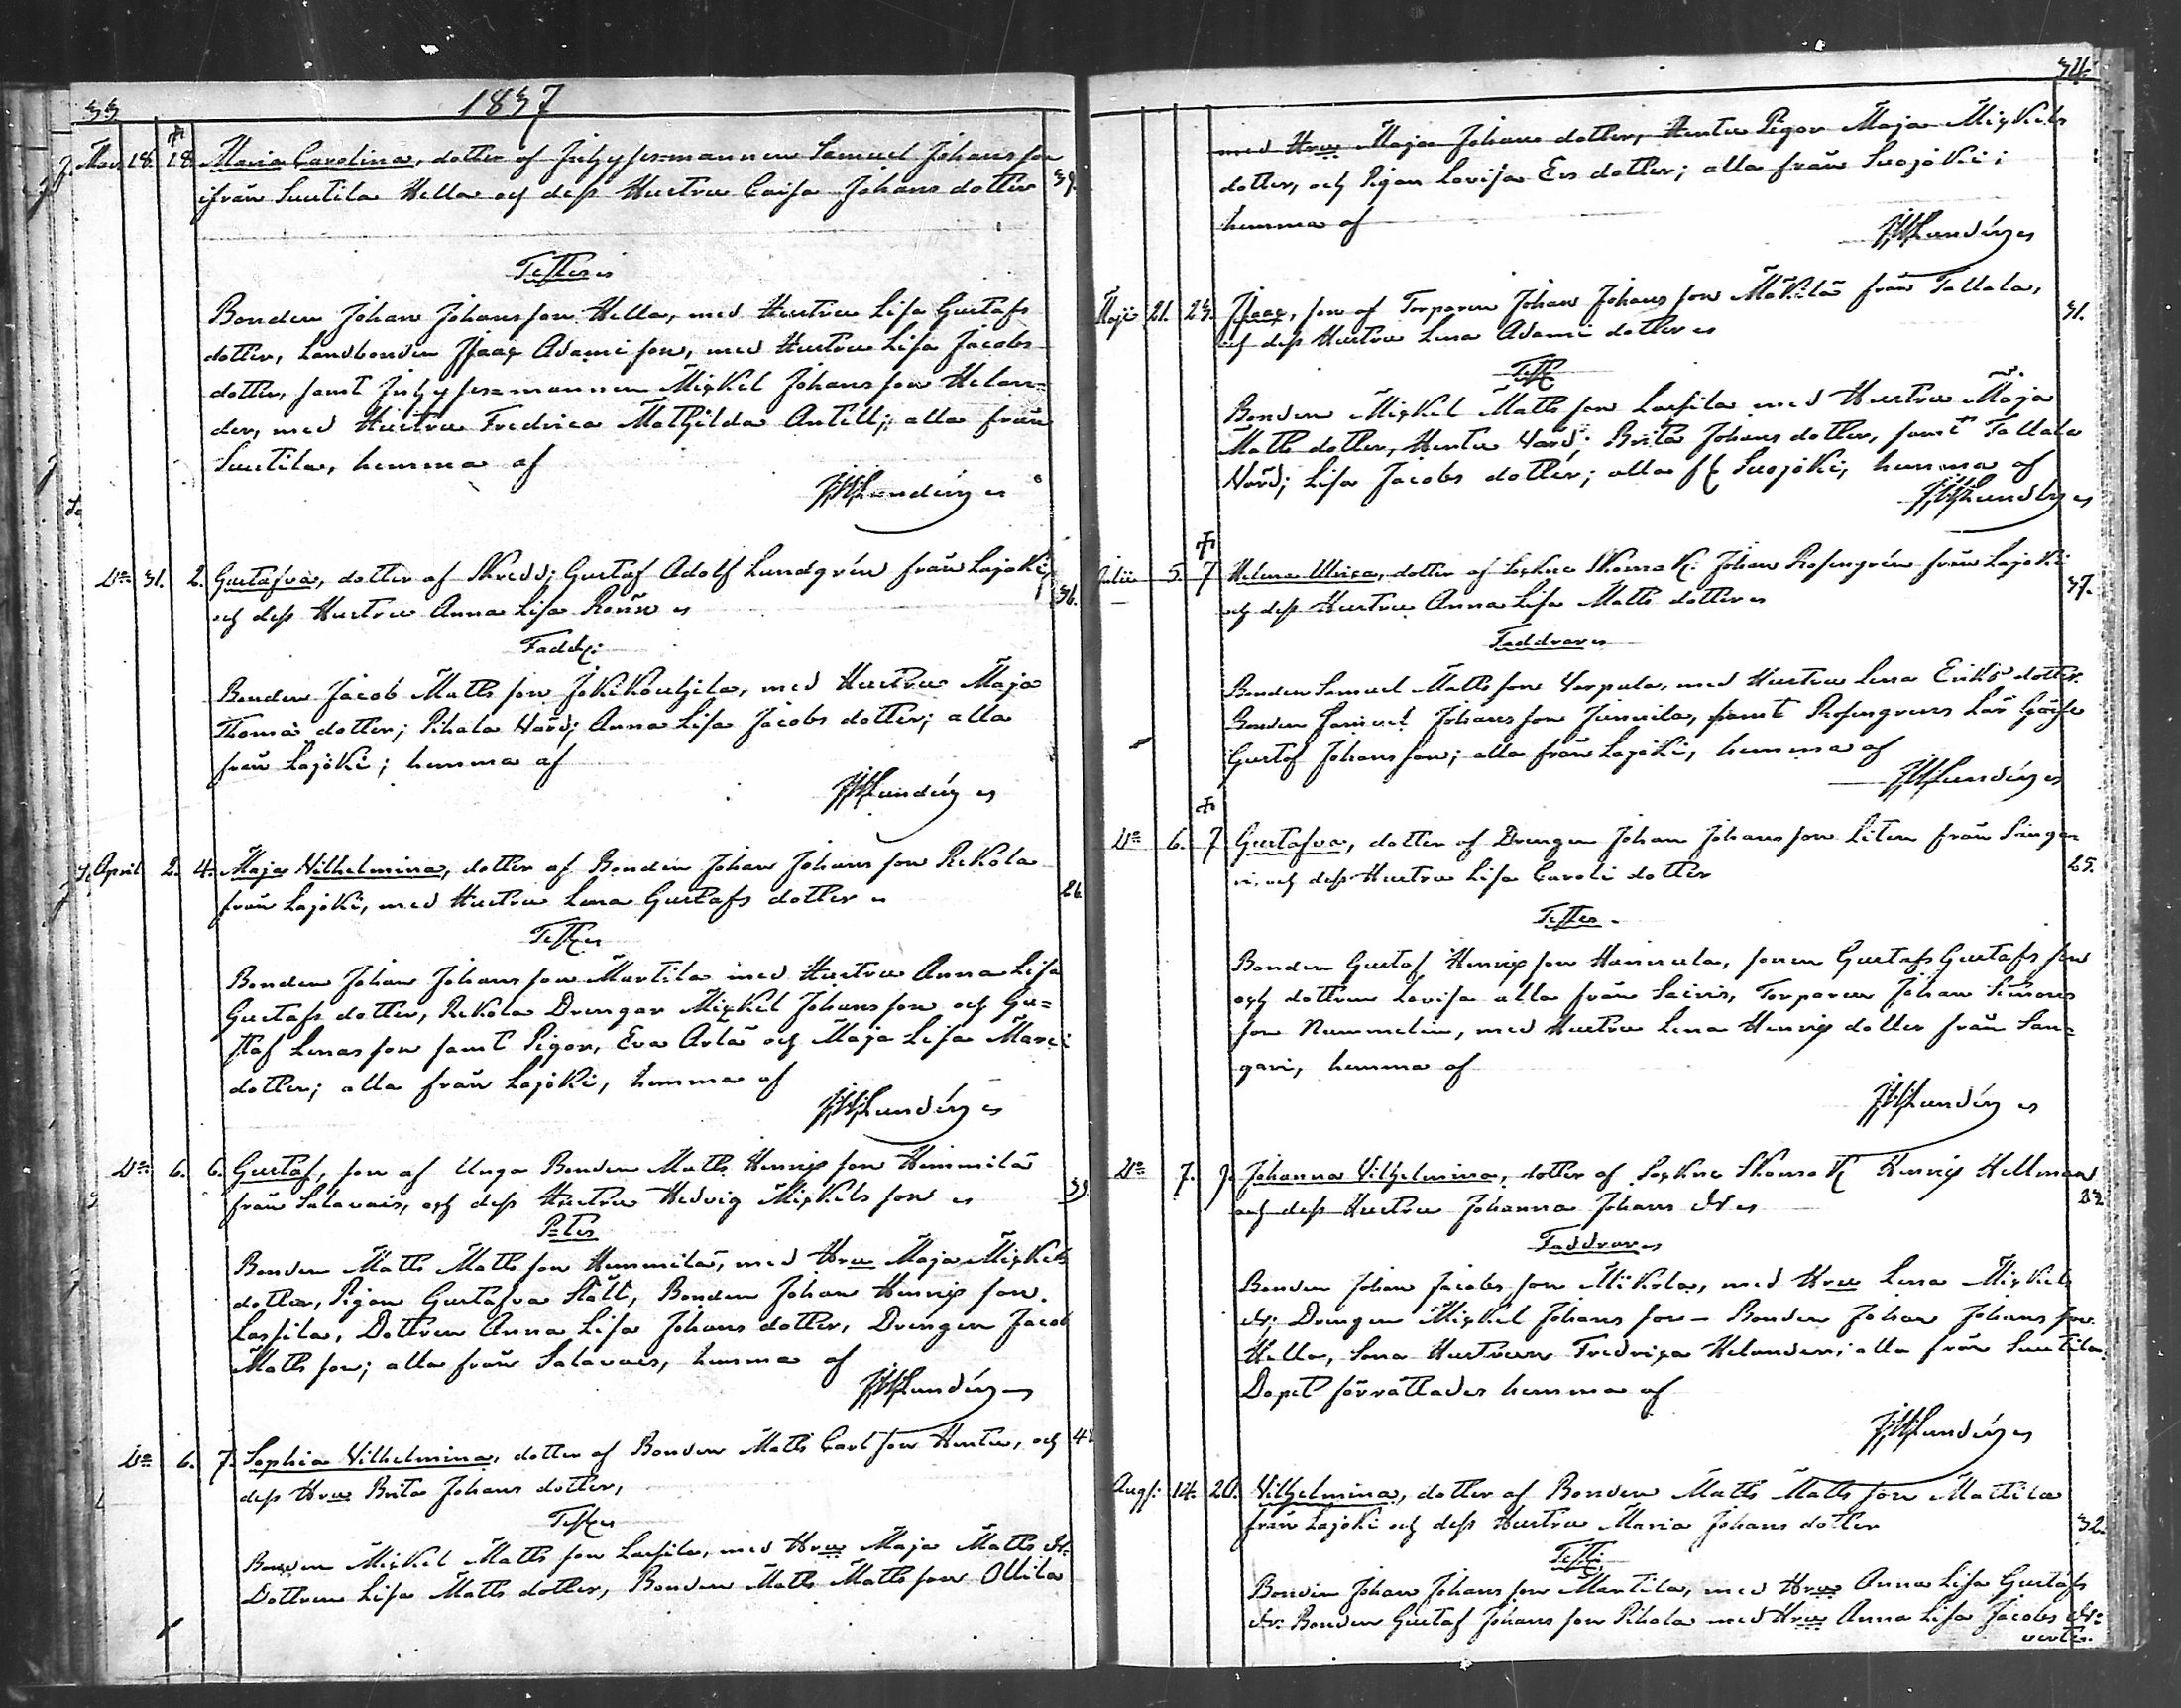 33
1837
Mars 18. 18. Maria Carolina, dotter af Inhysesmannen Samuel Johansson
ifrån Suutila Hella och dess Hustru Caisa Johansdotter 39.
Testes
Bonden Johan Johansson Hella, med Hustru Lisa Gustafs
dotter, Landbonden Isaac Adamisson, med Hustru Lisa Jacobs
dotter, samt Inhysesmannen Michel Johansson Helan=
der, med Hustru Fredrica Mathilda Antell; alla från
Suutila, hemma af
Lundén
Do 31. 2. Gustafva, dotter af Skredd; Gustaf Adolf Lundgrén från Lajoki,
och dess Hustru Anna Lisa Roun 36.
Fadd:
Bonden Jacob Mattsson Jokikouhila, med Hustru Maja
Thomædotter; Pihala Värd; Anna Lisa Jacobsdotter; alla
från Lajoki; hemma af
April 2. 4. Maja Vilhelmina, dotter af Bonden Johan Johansson Rekola
från Lajoki, med Hustru Lena Gustafsdotter 26
Testes
Bonden Johan Johansson Martila med Hustru Anna Lisa
Gustafsdotter, Rekola Drengar Michel Johansson och Gu=
staf Lenasson samt Pigor, Eva Arla och Maja Lisa Marci
dotter; alla från Lajoki, hemma af
Do 6. 6. Gustaf, son af Unga Bonden Matts Henricsson Himmilä
från Salavais, och dess Hustru Hedvig Michelsson 39
P=tes
Bonden Matts Mattsson Hemmilä, med Hru Maja Michels
dotter, Pigan Gustafva Stålt, Bonden Johan Henricsson
Lassila, Dottren Anna Lisa Johansdotter, Drengen Jacob
Mattsson; alla från Salavais, hemma af
Do 6. 7. Sophia Vilhelmina, dotter af Bonden Matts Carlsson Hentu, och
dess Hru Brita Johansdotter,
Testes
Bonden Michel Mattsson Lassila, med Hru Maja Matts dr
Dottren Lisa Mattsdotter, Bonden Matts Mattsson Ollila
34
med Hru Maja Johansdotter, Hentu Pigor Maja Michels
dotter, och Pigan Lovisa Ersdotter; alla från Suojoki;
hemma af
Maji 21. 23. Isaac, son af Torparen Johan Johansson Mäkilä från Tallala,
och dess Hustru Lena Adamidotter 31.
Test
Bonden Michel Mattsson Lassila med Hustru Maja
Mattsdotter, Hentu Värd; Brita Johansdotter, samt Tallala
Värd; Lisa Jacobsdotter; alla fr Suojoki, hemma af
Julii 5. 7 Helena Ulrica, dotter af Sockne Skomak: Johan Rosengrén från Lajoki
och dess Hustru Anna Lisa Mattsdotter 37.
Faddrar
Bonden Samuel Mattsson Varpula, med Hustru Lena Eriksdotter.
Bonden Samuel Johansson Junnila, samt Rosengrens Lär Gosse
Gustaf Johansson; alla från Lajoki, hemma af
Do 6. 7 Gustafva, dotter af Drengen Johan Johansson Liten från Sanga=
ri, och dess Hustru Lisa Carolidotter 25.
Testes
Bonden Gustaf Henricsson Hannula, sonen Gustaf Gustafsson
och dottren Lovisa alla från Sairis, Torparen Johan Simons
son Nummelin, med Hustru Lena Henricsdotter från San=
gari, hemma af
Do 7. 7. Johanna Vilhelmina, dotter af Sockne Skomak Henric Hellman
och dess Hustru Johanna Johans dr 22
Faddrar
Bonden Johan Jacobsson Mikola, med Hru Lena Michels
dr: Drengen Michel Johansson – Bonden Johan Johansson
Hella, samt Hustrun Fredrica Helander; alla från Suutila.
Dopet förrättades hemma af
Aug: 14. 20. Vilhelmina, dotter af Bonden Matts Mattsson Mattila
från Lajoki och dess Hustru Maria Johansdotter 32
Test:
Bonden Johan Johansson Martila, med Hru Anna Lisa Gustafs
dr: Bonden Gustaf Johansson Pihala med Hru Anna Lisa Jacobs dr:
verte.